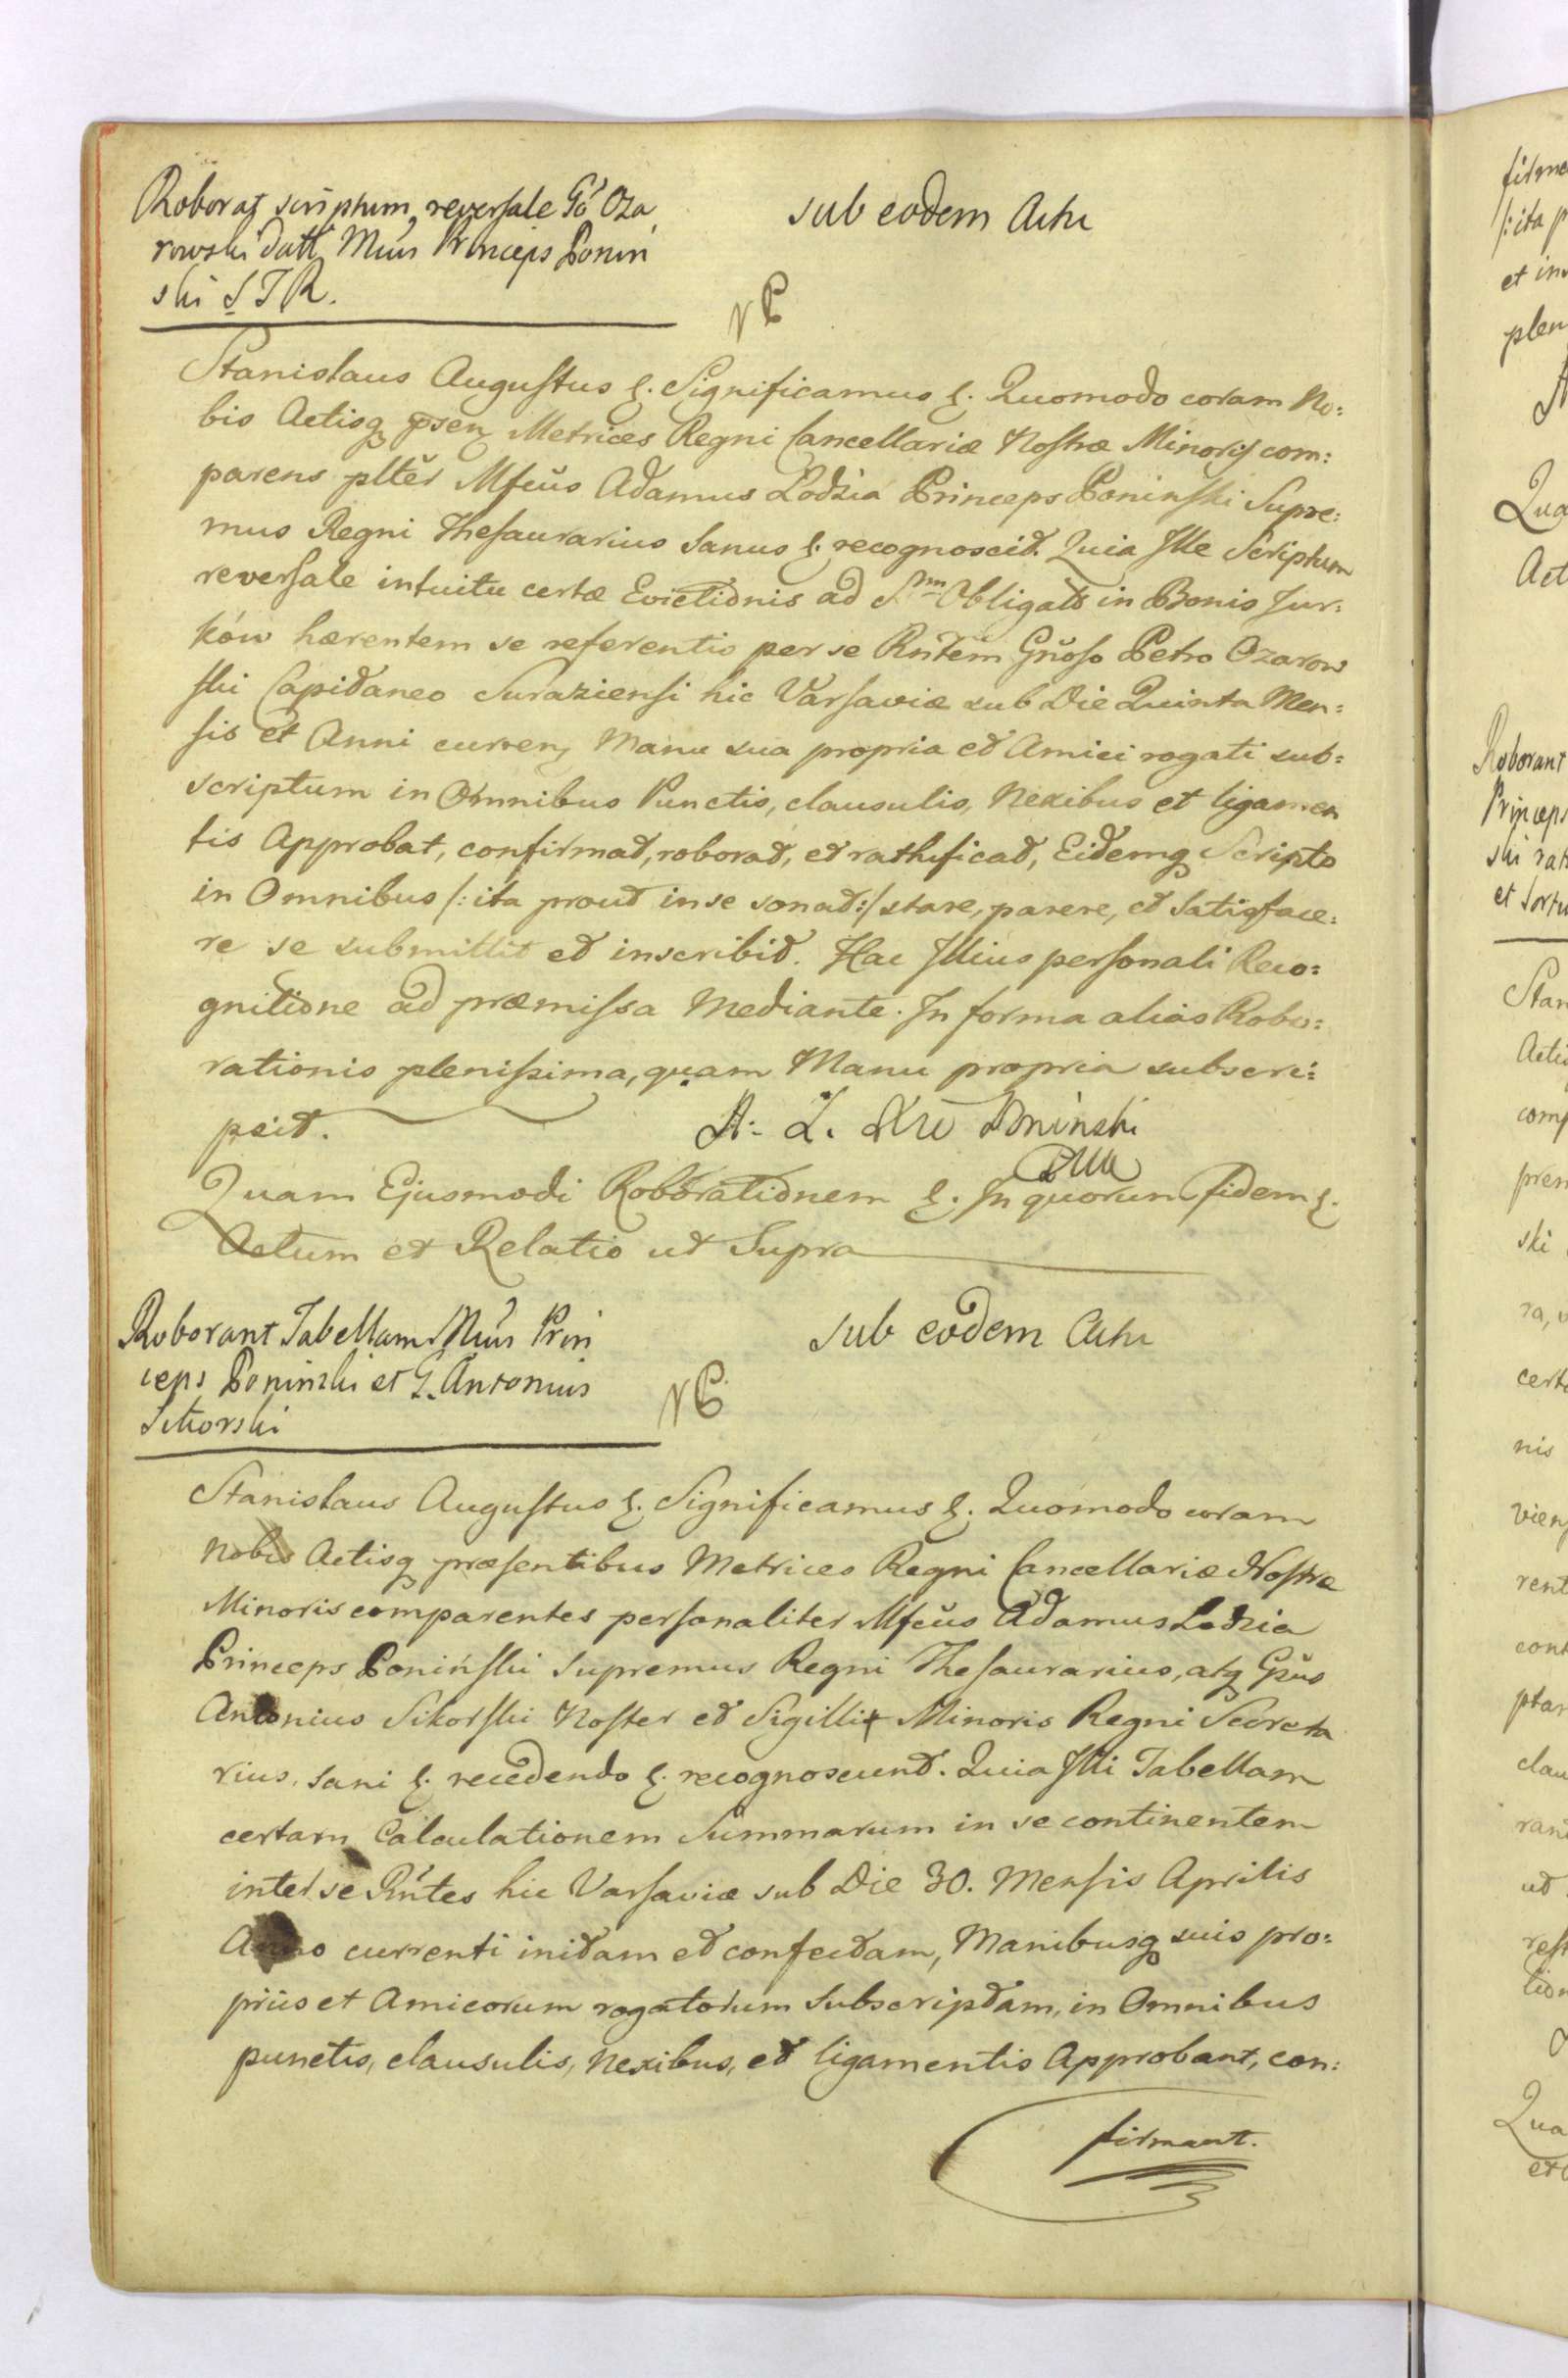 Roborat scriptum reversale Gō Oza
rowski datt Mcus Princeps Ponin
ski S T R.
sub eodem Actu
NB
Stanislaus Augustus &. Significamus &. Quomodo coram No:
bis Actisq psen Metrices Regni Cancellariæ Nostræ Minoris com:
parens plter Mfcus Adamus Lodzia Princeps Poninski Supre:
mus Regni Thesaurarius Sanus &. recognoscit. Quia Ille Scriptum
reversale intuitu certæ Evictionis ad Smm Obligato in Bonis Jur:
ków hærentem se referentis per se Rntem Gnoso Petro Ozarow
ski Capitaneo Suraziensi hic Varsaviæ sub Die Quinta Men:
sis et Anni curren Manu sua propria et Amici rogati sub:
scriptum in Omnibus Punctis, clausulis, Nexibus et ligamen
tis Approbat, confirmat, roborat, et rathificat, Eidemq Scripto
in Omnibus /: ita prout in se sonat:/ stare, parere, et Satisface:
re se submittit et inscribit. Hac Illius personali Reco:
gnitione ad præmissa Mediante. In forma alias Robo:
rationis plenissima, quam Manu propria subscri:
psit.
A: L. Poninski
Quam Ejusmodi Roborationem &. In quorum fidem &.
Actum et Relatio ut Supra
Roborant Tabellam Mcus Prin
ceps Poninski et G. Antonius
Sikorski
sub eodem Actu
NB
Stanislaus Augustus &. Significamus &. Quomodo coram
Nobis Actisq præsentibus Metrices Regni Cancellariæ Nostræ
Minoris comparentes personaliter Mfcus Adamus Lodzia
Princeps Poniński Supremus Regni Thesaurarius, atq Gsus
Antonius Sikorski Noster et Sigilli Minoris Regni Secreta
rius. Sani &. recedendo &. recognoscunt. Quia Illi Tabellam
certam Calculationem Summarum in se continentem
inter se Rntes hic Varsaviæ sub Die 30. Mensis Aprilis
Anno currenti initam et confectam, Manibusq suis pro:
priis et Amicorum rogatorum Subscriptam, in Omnibus
punctis, clausulis, Nexibus, et ligamentis Approbant, con:
firmant.